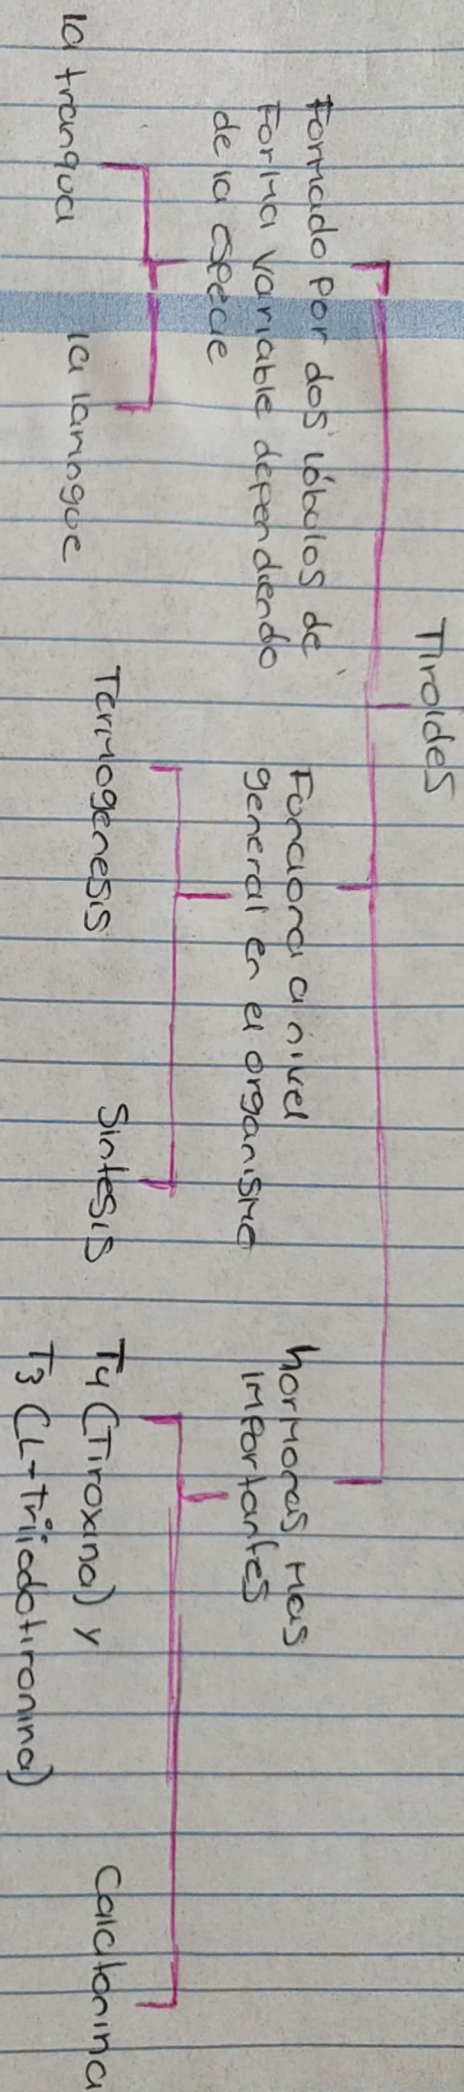 Tiroides
Formado por dos lóbulos de
Forma variable dependiendo
de la especie
la tranqua
la laringue
Funciona a nivel
general en el organismo
Termogenesis
Sintesis
hormonas mas
importantes
T4 (Tiroxina) y
T3 (L-Triiodotironina)
Calcitonina